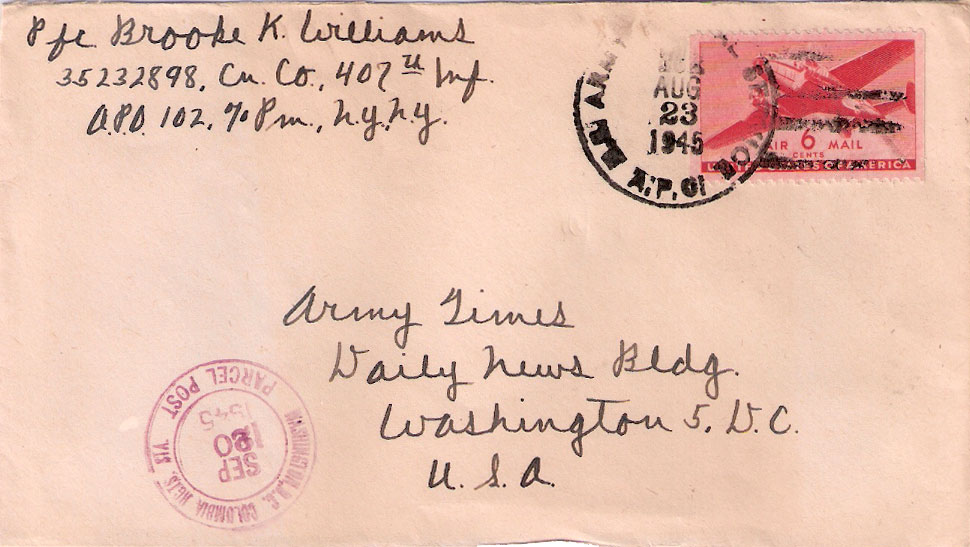 Pfc Brooke K. Williams
35232898, Cn. Co., 407th Inf.
A.P.O. 102, % Pm., N.Y. N.Y.
U.S. ARMY
AUG
23
1945
A.P.O.
AIR 6 MAIL
CENTS
UNITED STATES OF AMERICA
Army Times
Daily News Bldg.
Washington 5, D.C.
U.S.A.
WASHINGTON, D.C. COLUMBIA HGTS. STA
SEP
20
1945
PARCEL POST